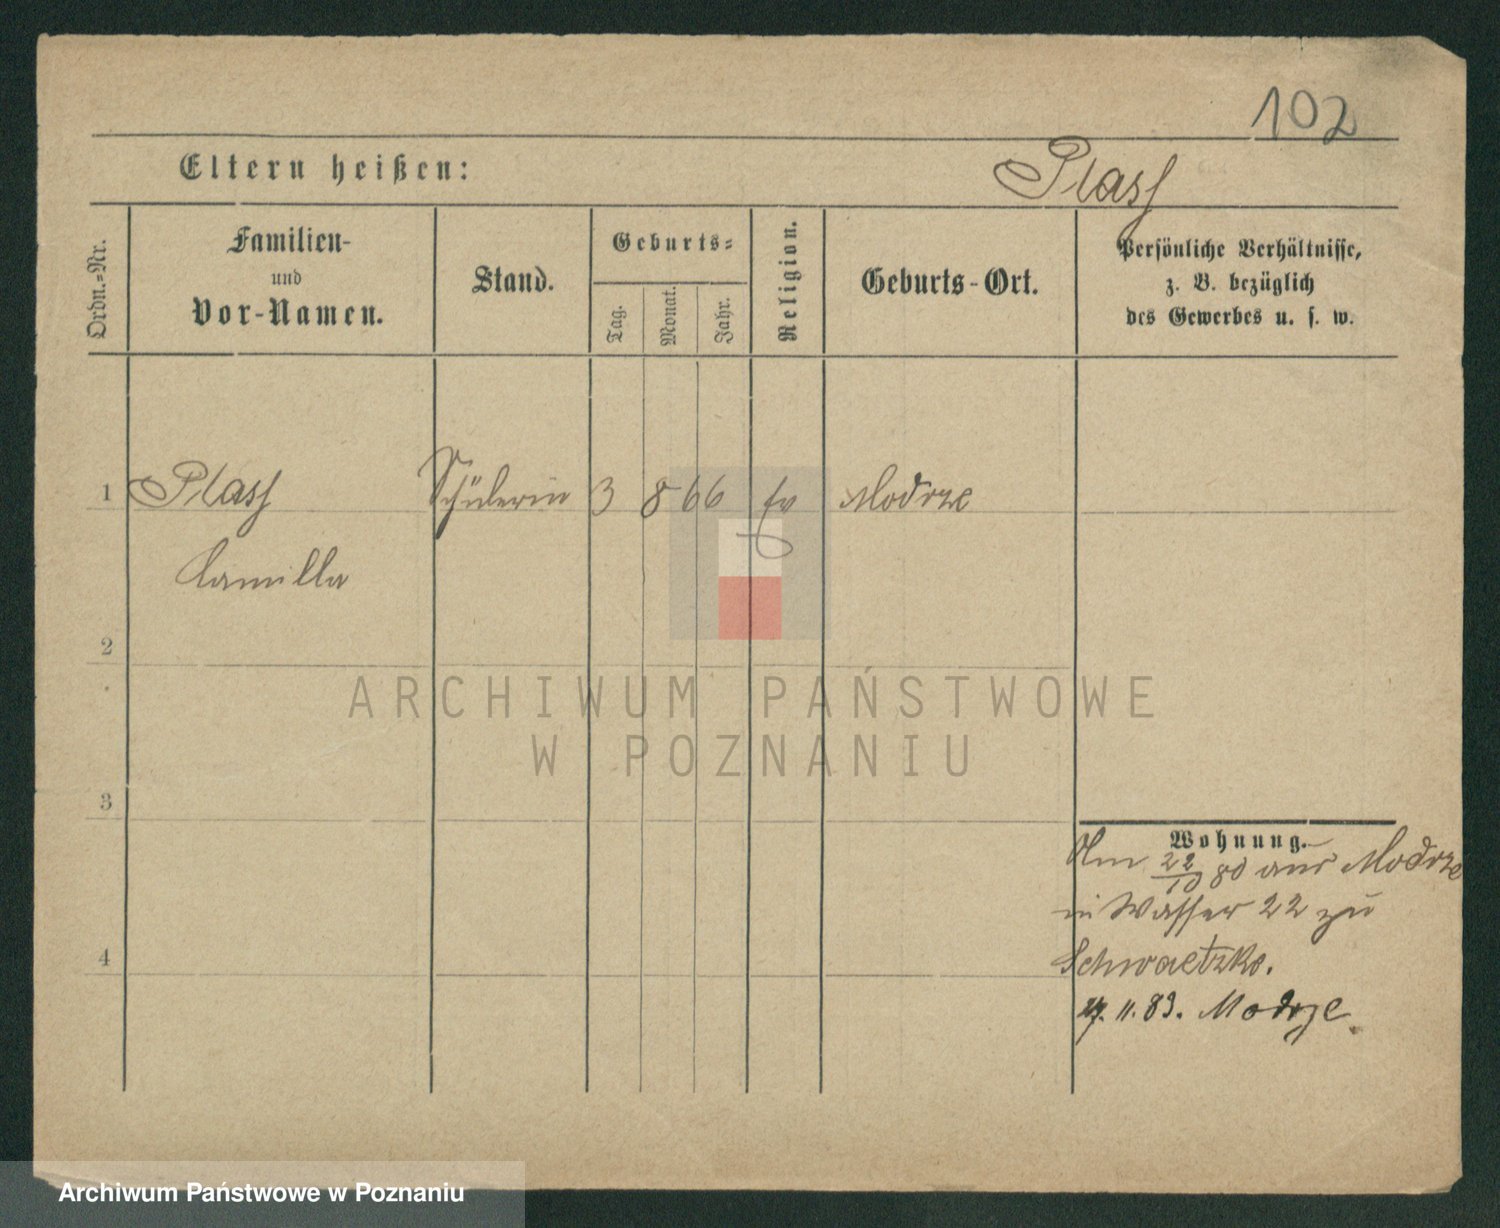 102
Eltern heißen:
Plass
Ordn.-Nr.
Familien-
und
Vor-Namen.
Stand.
Geburts-
Tag.
Monat.
Jahr.
Religion.
Geburts-Ort.
Persönliche Verhältnisse,
z. B. bezüglich
des Gewerbes u. s. w.
1 Plass Schülerin 3 8 66 Ev Modrze
Camilla
2
3
4
ARCHIWUM PAŃSTWOWE
W POZNANIU
Wohnung.
Am 22/10 80 aus Modrze
in Wasser 22 zu
Schwaetzke.
27. 11. 83. Modrze.
Archiwum Państwowe w Poznaniu